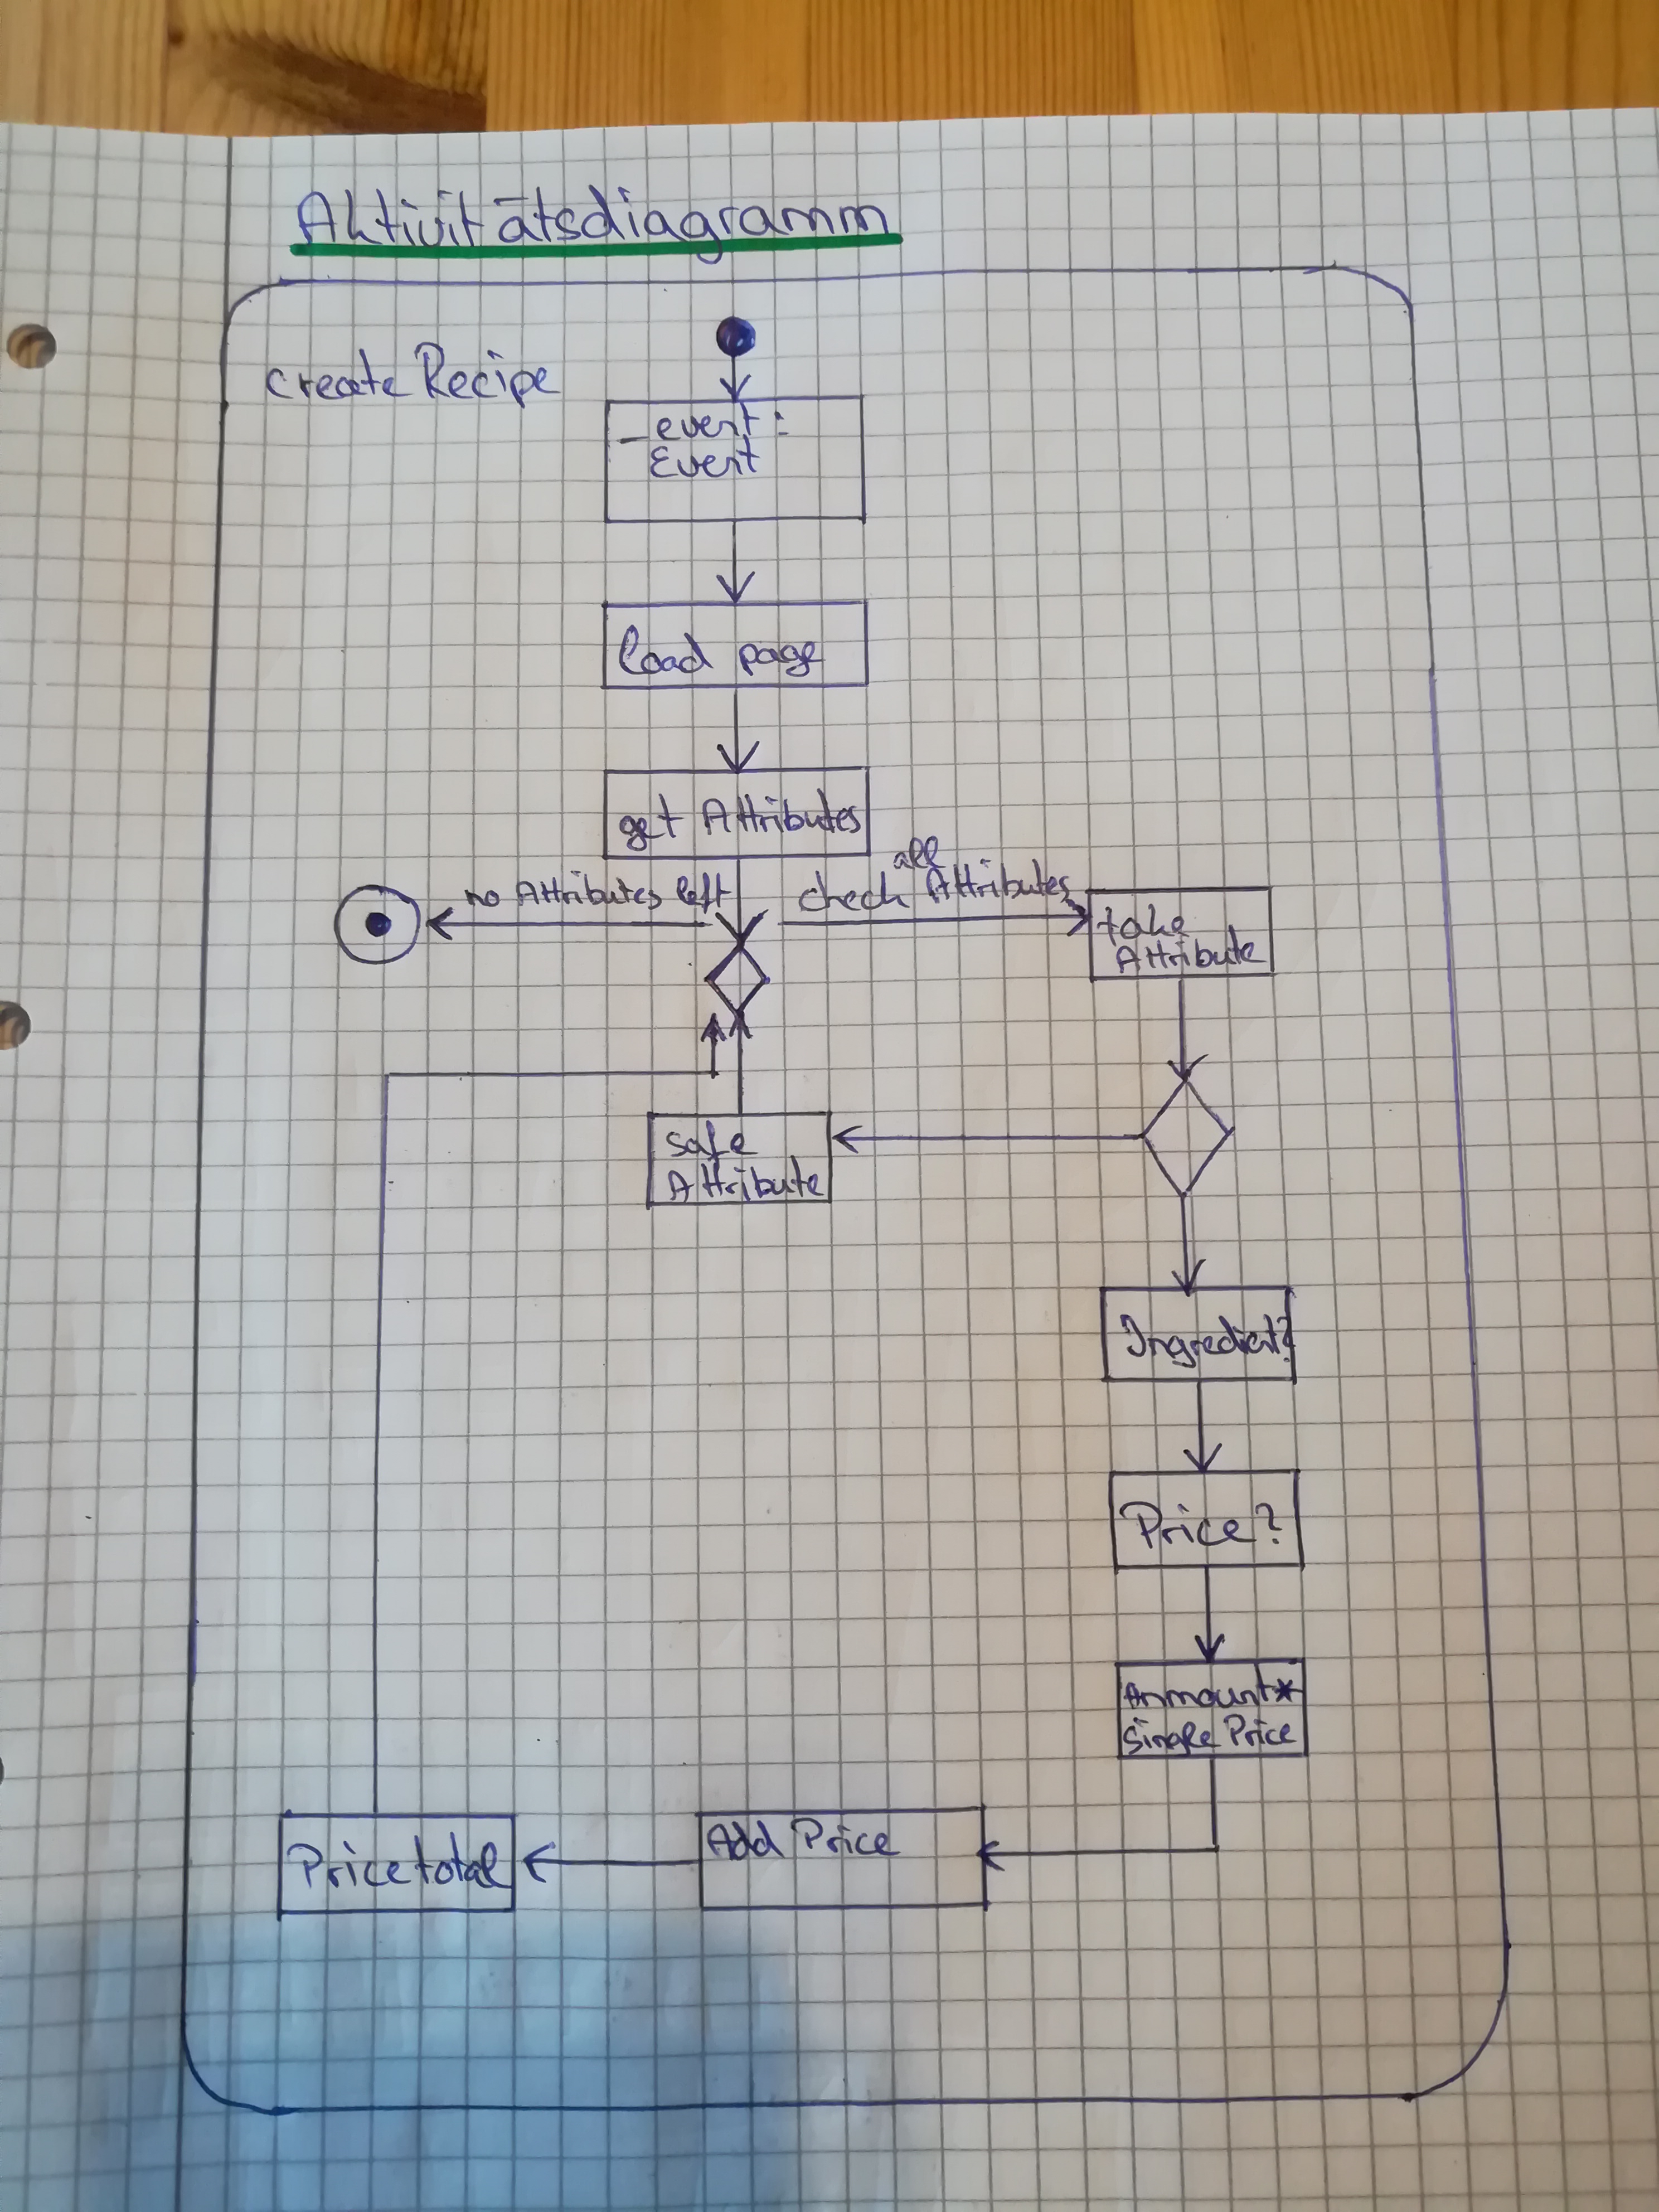 Aktivitätsdiagramm
create Recipe
_event:
Event
load page
get Attributes
no Attributes left
all
check Attributes
take
Attribute
safe
Attribute
Ingredient?
Price?
Anmount*
single Price
Add Price
Pricetotal